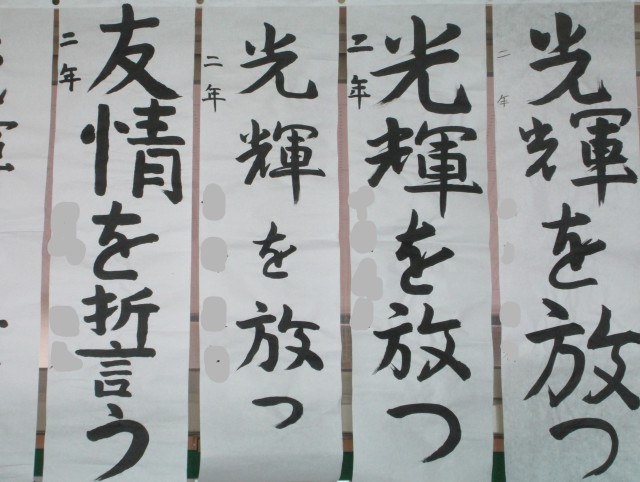 光輝を放つ
二年
光輝を放つ
二年
光輝を放つ
二年
友情を誓う
二年